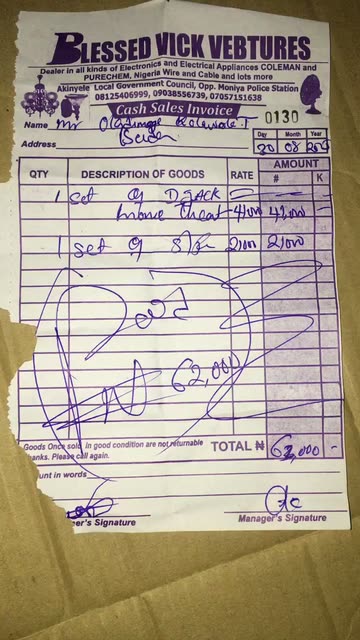 BLESSED VICK VEBTURES
Dealer in all kinds of Electronics and Electrical Appliances COLEMAN and
PURECHEM, Nigeria Wire and Cable and lots more
Akinyele Local Government Council, Opp. Moniya Police Station
08125406999, 09038556739, 07057151638
Cash Sales Invoice 0130
Name Mr
Address
Day Month Year
30 08
QTY DESCRIPTION OF GOODS RATE AMOUNT
# K
1 set of DJACK
Home theat 41,000 41,000
1 set of 21,000 21,000
Paid
₦ 62,000
Goods Once sold in good condition are not returnable
hanks. Please call again.
TOTAL ₦ 62,000 -
unt in words
er's Signature
Manager's Signature